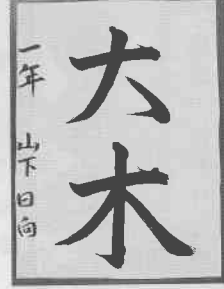 大木
一年 山下日向